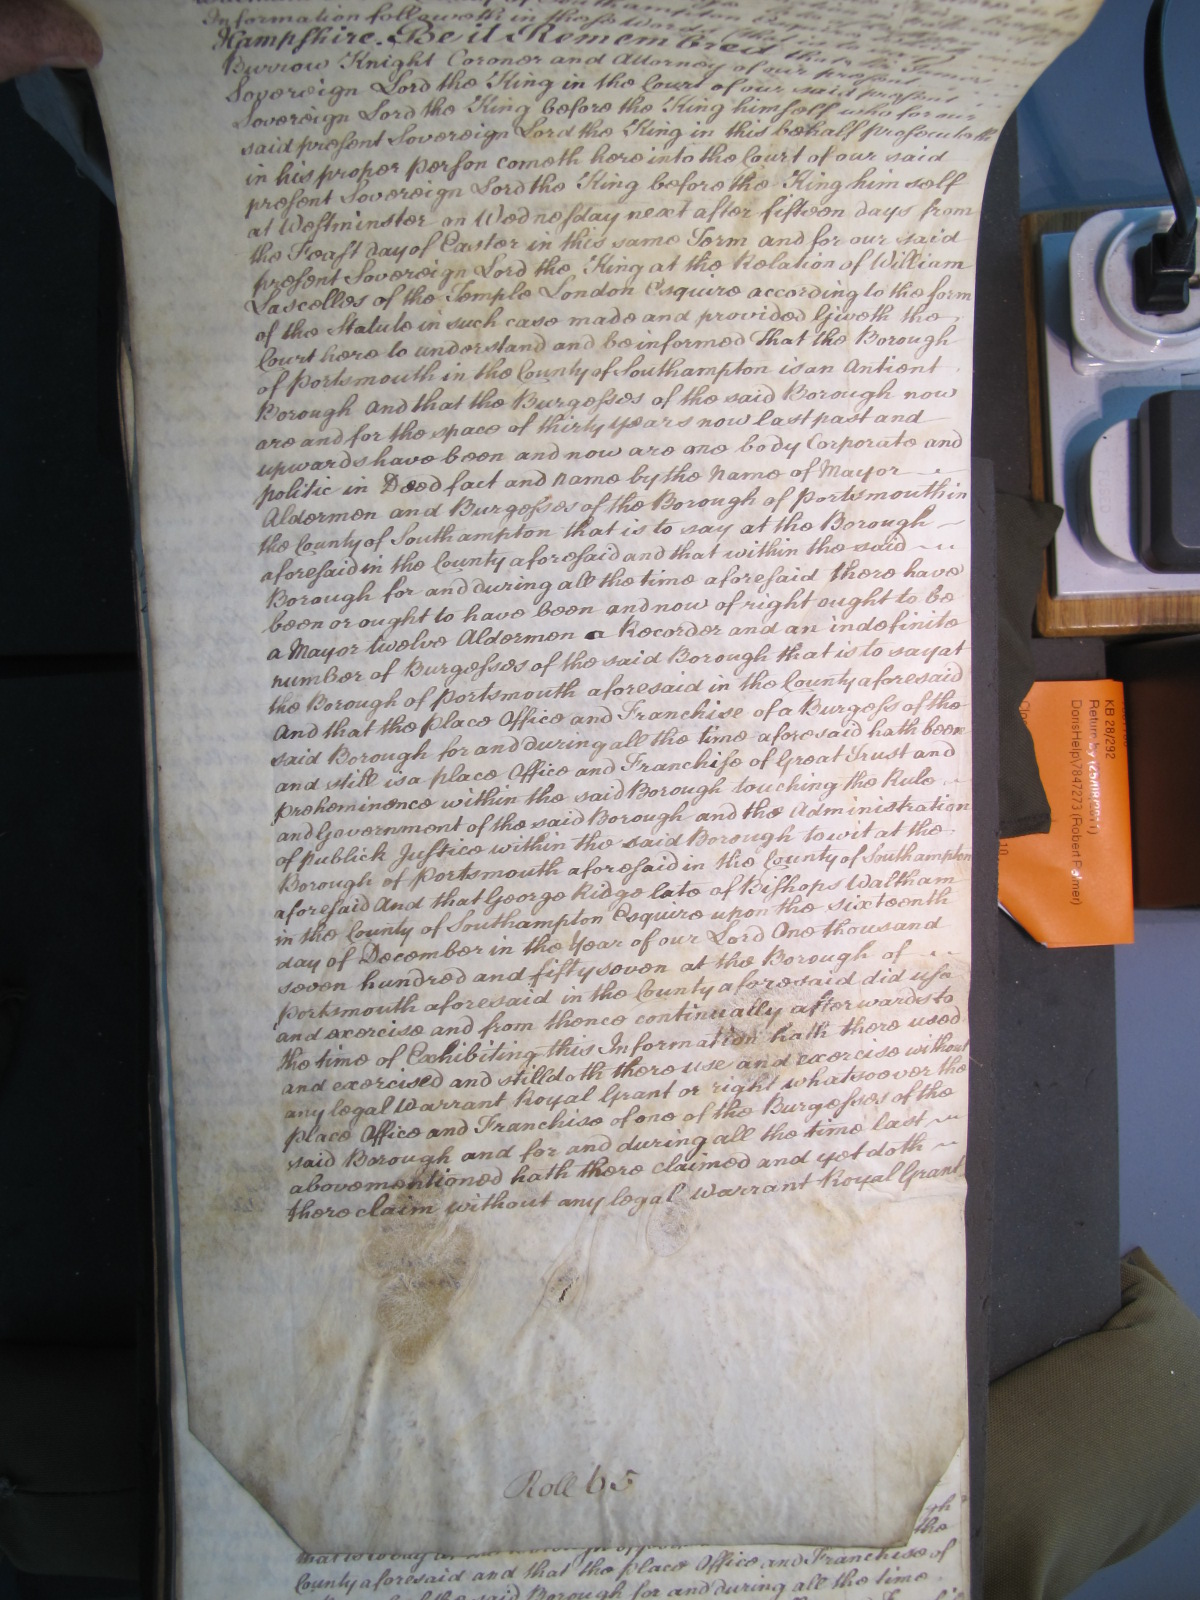 Information followeth in these Words
Hampshire. Be it Remembred that Sr. James
Burrow Knight Coroner and Attorney of our present
Sovereign Lord the King in the Court of our said present
Sovereign Lord the King before the King himself who for our
said present Sovereign Lord the King in this behalf prosecuteth
in his proper Person cometh here into the Court of our said
present Sovereign Lord the King before the King him self
at Westminster on Wednesday next after fifteen days from
the Feast day of Easter in this same Term and for our said
present Sovereign Lord the King at the Relation of William
Lascelles of the Temple London Esquire according to the form
of the Statute in such case made and provided Giveth the
Court here to understand and be informed That the Borough
of Portsmouth in the County of Southampton is an Antient
Borough And that the Burgesses of the said Borough now
are and for the space of thirty years now last past and
upwards have been and now are one body Corporate and
politic in Deed fact and name by the Name of Mayor
Aldermen and Burgesses of the Borough of Portsmouth in
the County of Southampton that is to say at the Borough
aforesaid in the County aforesaid and that within the said
Borough for and during all the time aforesaid there have
been or ought to have been and now of right ought to be
a Mayor twelve Aldermen a Recorder and an indefinite
number of Burgesses of the said Borough that is to say at
the Borough of Portsmouth aforesaid in the County aforesaid
And that the Place Office and Franchise of a Burgess of the
said Borough for and during all the time aforesaid hath been
and still is a place Office and Franchise of Great Trust and
preheminence within the said Borough touching the Rule
and Government of the said Borough and the Administration
of publick Justice within the said Borough to wit at the
Borough of Portsmouth aforesaid in the County of Southampton
aforesaid And that George Ridge late of Bishops Waltham
in the County of Southampton Esquire upon the sixteenth
day of December in the Year of our Lord One thousand
seven hundred and fifty seven at the Borough of
Portsmouth aforesaid in the County aforesaid did use
and exercise and from thence continually afterwards to
the time of Exhibiting this Information hath there used
and exercised and still doth there use and exercise without
any legal Warrant Royal Grant or right whatsoever the
place Office and Franchise of one of the Burgesses of the
said Borough and for and during all the time last
abovementioned hath there claimed and yet doth
there claim without any legal Warrant Royal Grant
Roll 65
the
County aforesaid and that the place Office and Franchise of
the said Borough for and during all the time
KB 28/292
Return by (25/08/2011)
DorisHelp\7847273 (Robert Palmer)